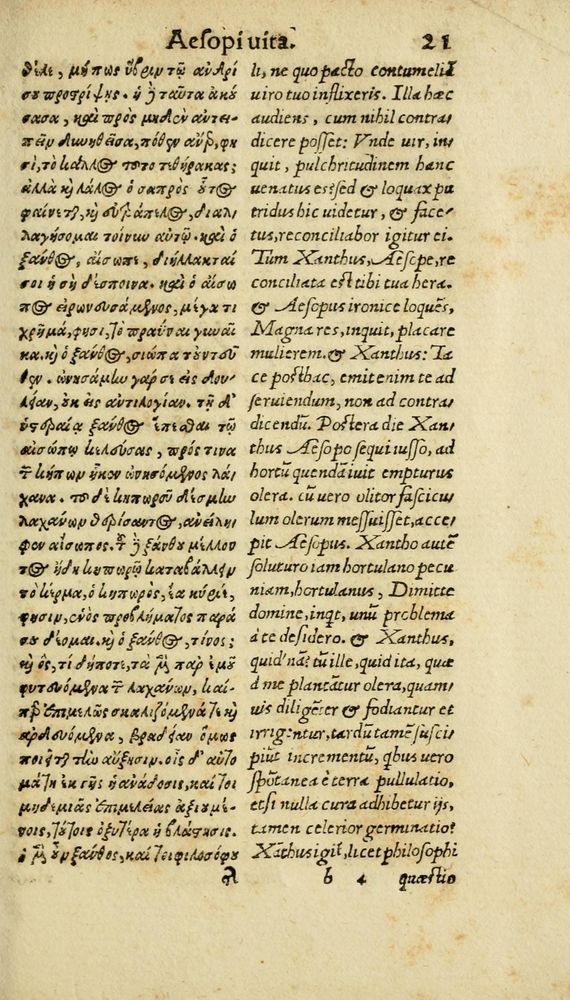 Aesopi uita. 21
θέλε, μήπως ὕβριν τῷ ἀνδρί
σου προστρίψῃς. ἡ δὲ ταῦτα ἀκού
σασα, καὶ πρὸς μηδὲν ἀντει-
πεῖν δυνηθεῖσα, πόθεν ἄνερ, φη
σὶ, τὸ κάλλος τοῦτο τεθήρακας;
ἀλλὰ καὶ λάλος ὁ σαπρὸς οὗτος
φαίνεται, καὶ εὐτράπελος, διαλ
λαγήσομαι τοίνυν αὐτῷ. καὶ ὁ
ξάνθος, αἴσωπε, διήλλακταί
σοι ἡ σὴ δέσποινα. καὶ ὁ αἴσω
πος εἰρωνευσάμενος, μέγα τι
χρῆμά, φησι, τὸ πραῧναι γυναῖ
κα. καὶ ὁ ξάνθος, σιώπα τοντεῦ
θεν. ὠνησάμην γάρ σε εἰς δου-
λείαν, οὐκ εἰς ἀντιλογίαν. τῇ δ'
ὑστεραίᾳ ξάνθος ἕπεσθαι τῷ
αἰσώπῳ κελεύσας, πρός τινα
τῶν κήπων ἧκεν ὠνησόμενος λά
χανα. τοῦ δὲ κηπωροῦ δέσμην
λαχάνων θερίσαντος, ἀνείλη-
φεν αἴσωπος. τοῦ δὲ ξάνθου μέλλον
τος ἤδη κηπωρῷ καταβάλλειν
τὸ κέρμα, ὁ κηπωρὸς, ἔα κύριε,
φησιν, ἑνὸς προβλήματος παρὰ
σοῦ δέομαι. καὶ ὁ ξάνθος, τίνος;
καὶ ὃς, τί δήποτε, τὰ μὲν παρ' ἐμοῦ
φυτευόμενα τῶν λαχάνων, καί-
περ ἐπιμελῶς σκαλιζόμενά τε καὶ
ἀρδευόμενα, βραδεῖαν ὅμως
ποιεῖται τὴν αὔξησιν. οἷς δ' αὐτο
μάτη ἐκ γῆς ἡ ἀνάδοσις, καίτοι
μηδεμιᾶς ἐπιμελείας ἀξιουμέ-
νοις, τούτοις ὀξυτέρα ἡ βλάστησις.
ὁ μὲν οὖν ξάνθος, καίτοι φιλοσόφου
li, ne quo pacto contumeliā
uiro tuo inflixeris. Illa hæc
audiens, cum nihil contra
dicere posset: Vnde uir, in
quit, pulchritudinem hanc
uenatus es? sed & loquax pu
tridus hic uidetur, & face
tus, reconciliabor igitur ei.
Tum Xanthus, Aesope, re
conciliata est tibi tua hera.
& Aesopus ironice loquēs,
Magna res, inquit, placare
mulierem. & Xanthus: Ta
ce posthac, emit enim te ad
seruiendum, non ad contra
dicendū. Postera die Xan
thus Aesopo sequi iusso, ad
hortū quendā iuit empturus
olera. cū uero olitor fascicu
lum olerum messuisset, acce
pit Aesopus. Xantho autē
soluturo iam hortulano pecu
niam, hortulanus, Dimitte
domine, inqt, unū problema
à te desidero. & Xanthus,
quid'nā? tū ille, quid ita, quæ
à me plantātur olera, quam
uis diligēter & fodiantur et
irrigentur, tardū tamē susci
piūt incrementū, qbus uero
spōtanea è terra pullulatio,
etsi nulla cura adhibetur ijs,
tamen celerior germinatio?
Xāthus igit, licet philosophi
b 4 quæstio